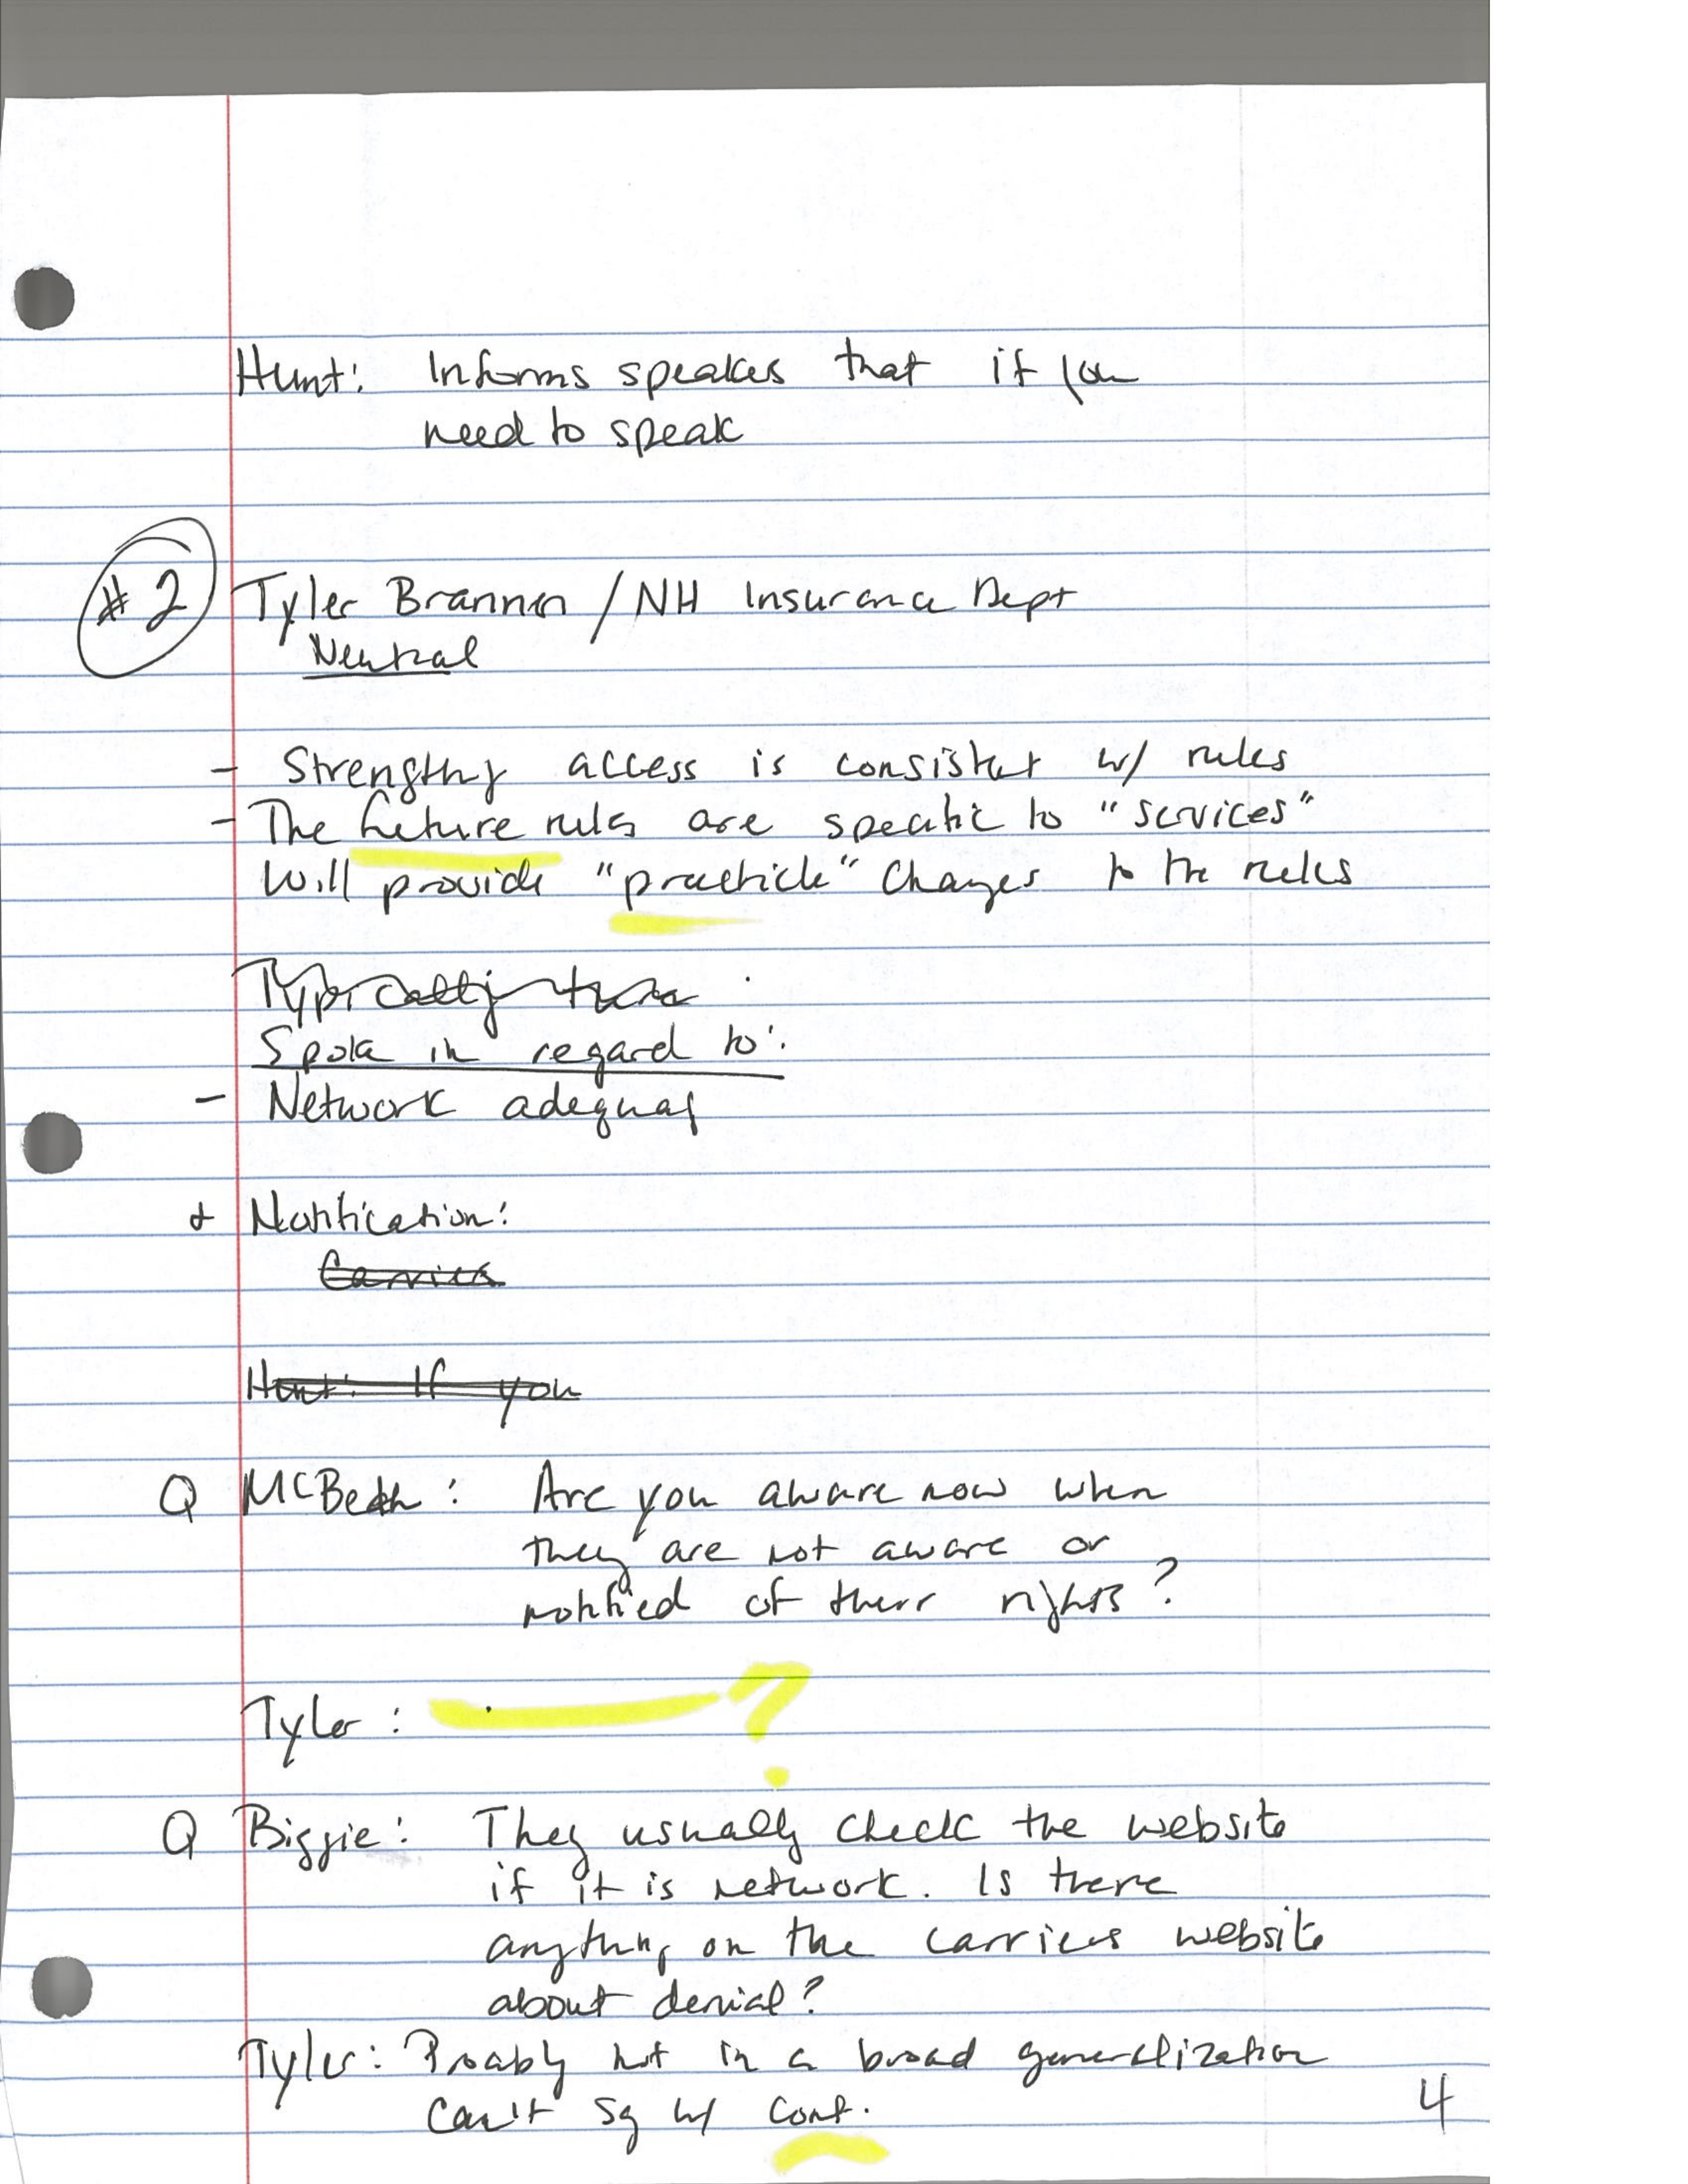 Hunt: Informs speakes that if you
need to speak
#2 Tyler Brannen / NH Insurance Dept
Neutral
- Strengthg access is consistet w/ rules
- The future rules are specific to "services"
Will provide "practicle" Changes to the rules
Typically there
Spoke in regard to:
- Network adequay
+ Notification:
Carriers
Hunt: If you
Q McBeth: Are you aware now when
they are not aware or
notified of their rights?
Tyler: ?
Q Biggie: They usually check the website
if it is network. Is there
anything on the carriers website
about denial?
Tyler: Proably not in a broad generalization
Can't sy w/ conf.
4